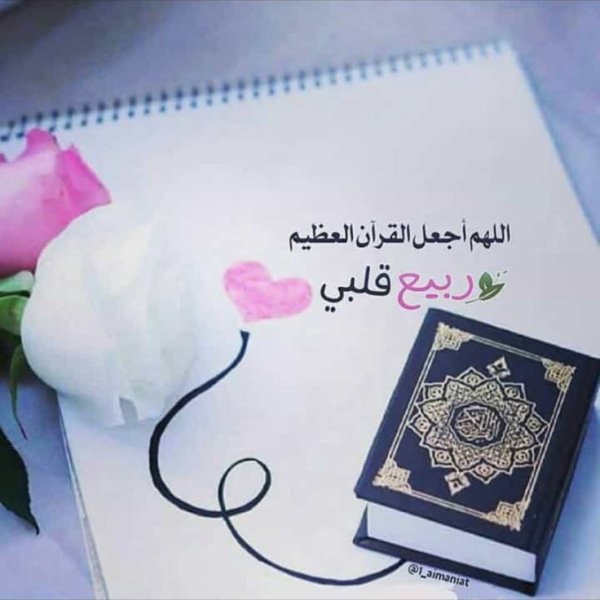 اللهم أجعل القرآن العظيم
ربيع قلبي
@1_aimaniat